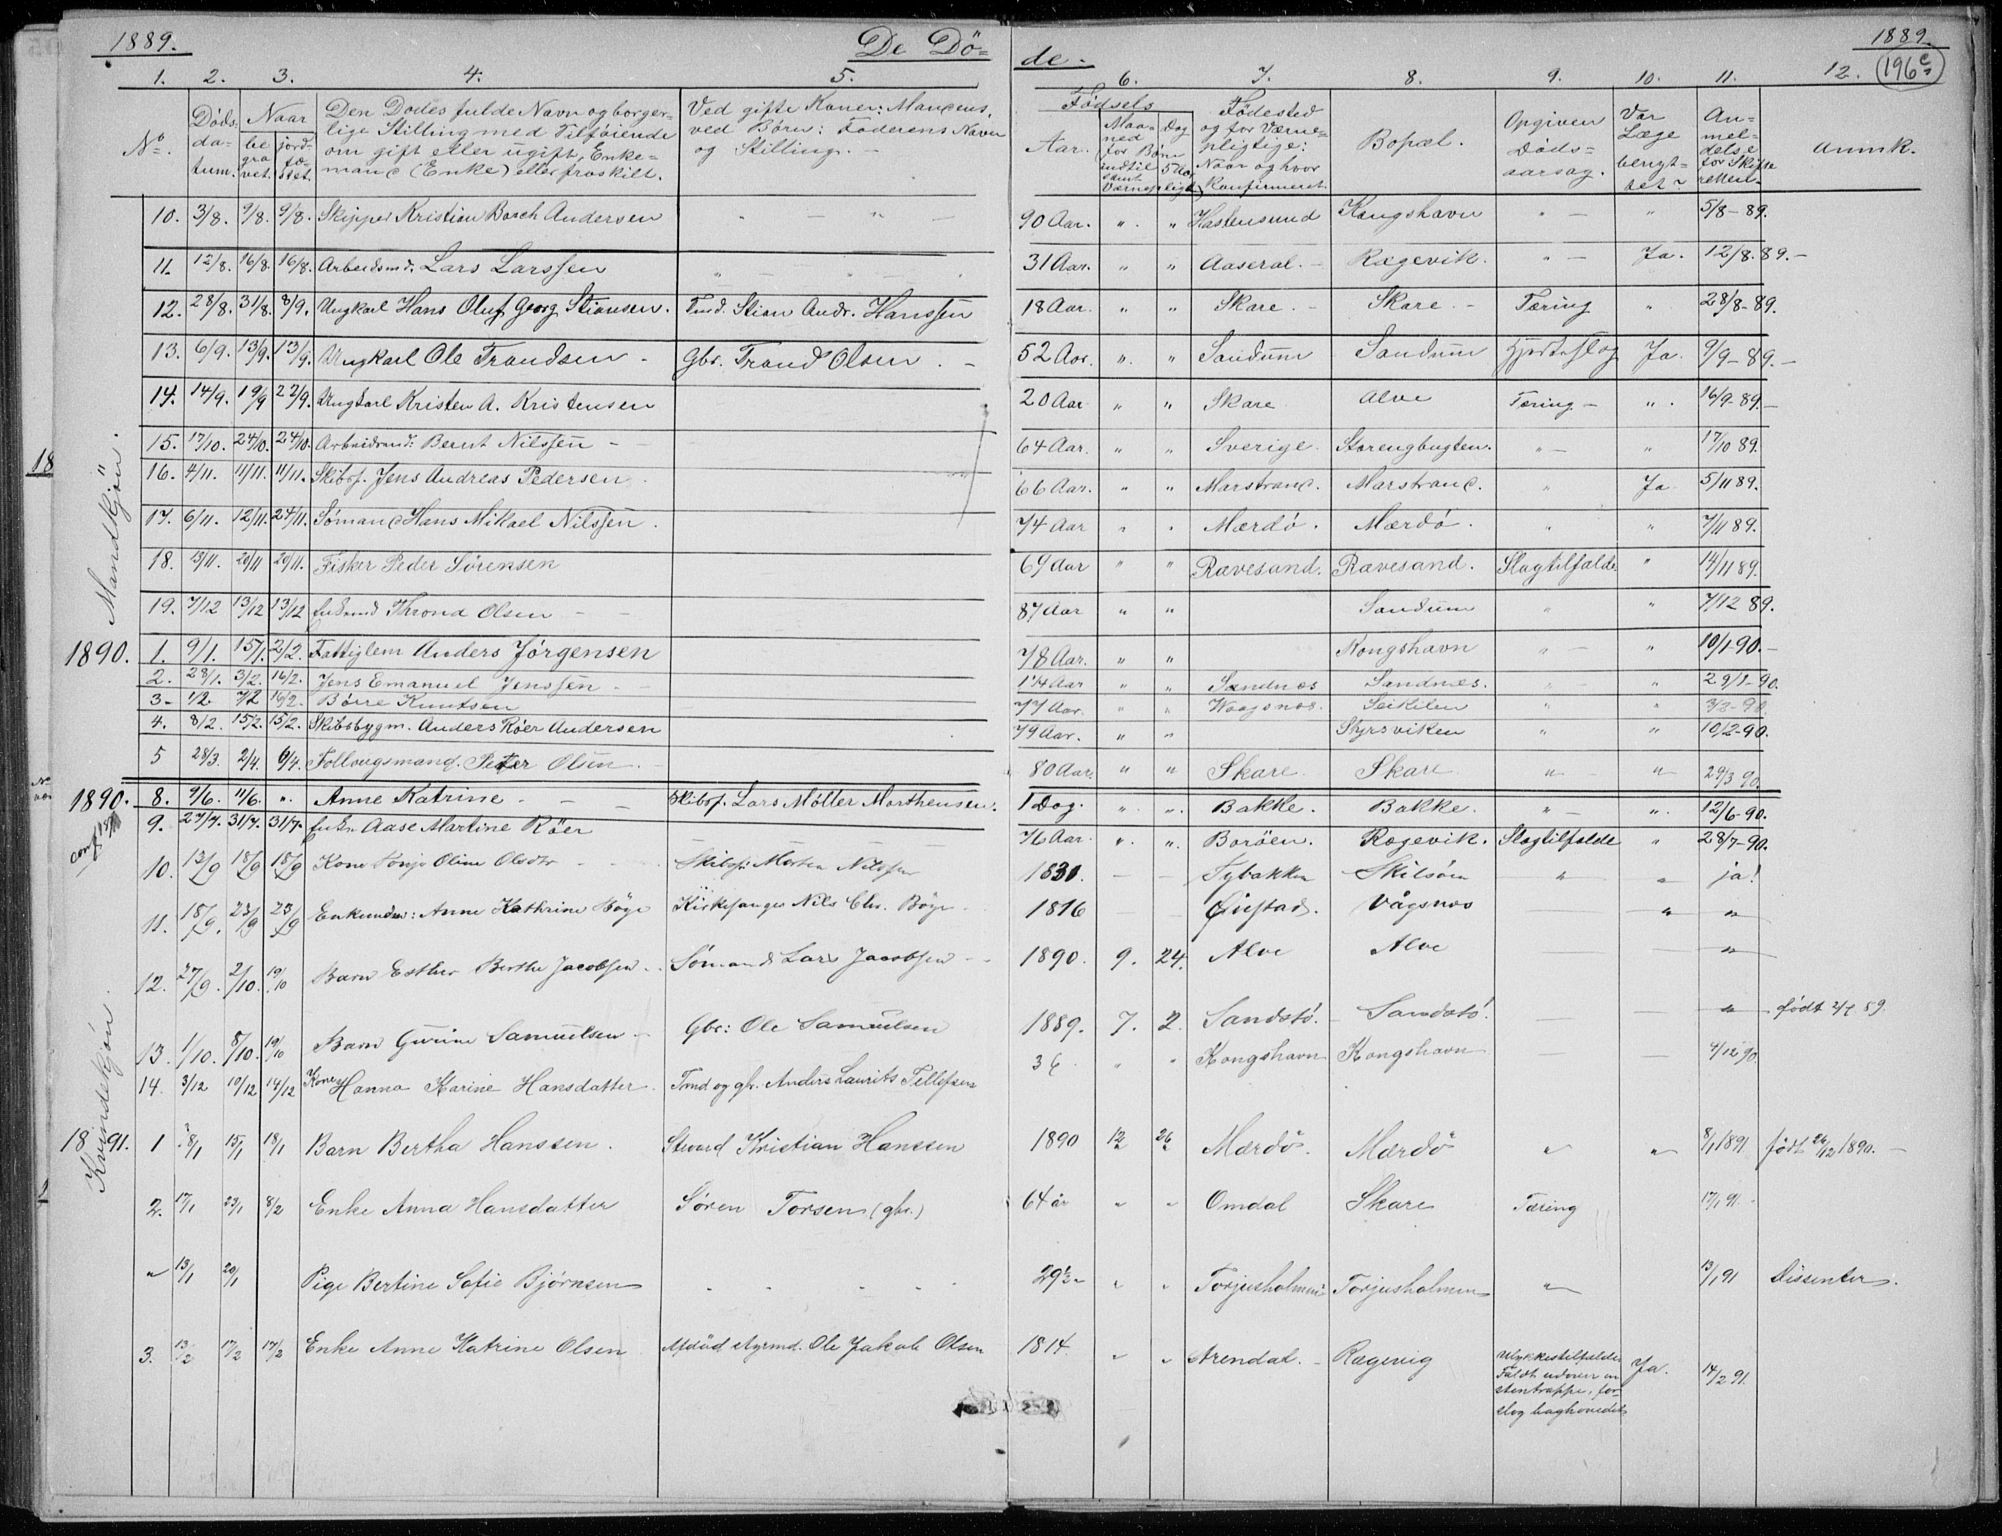 1889. De Dö= de. 1889.
196e
1. 2. 3. 4. 5. 6. 7. 8. 9. 10. 11. 12.
No. Døds-da-tum. Naar be gra vet. jord-fæ-stet. Den Dødes fulde Navn og borger-lige Stilling med Tilføiende om gift eller ugift, Enke-mand (Enke) eller fraskilt. Ved gifte Koner: Mandens, ved Børn: Faderens Navn og Stilling. Fødsels Aar. Maa-ned for Børn indtil samt Værnepligt. Dag 5 Aar Fødested og for Værne-pligtige: Naar og hvor Konfirmeret. Bopæl. Opgiven Døds-aarsag. Var Læge benyt-tet? An-mel-delse for Skifte retten. Anmk.
Mandkjön.
10. 3/8. 9/8. 9/8. Skipper Kristian Bosch Andersen " — " — 90 Aar. " " Hastensund Kongshavn " — " 5/8-89.
11. 12/8. 16/8. 16/8. Arbeidsmd. Lars Larssen " — " — 31 Aar. " " Aaseral. Rægevik. " — Ja. 12/8.89.
12. 28/8. 31/8. 8/9. Ungkarl Hans Oluf Georg Stiansen. Tmd. Stian Andr. Hanssen 18 Aar. " " Skare. Skare. Tæring " 28/8-89.
13. 6/9. 13/9. 13/9. Ungkarl Ole Trondsen - Gbr. Trond Olsen. - 52 Aar. " " Sandum Sandum Hjerteslag Ja. 9/9-89.
14. 14/9. 19/9 22/9. Ungkarl Kristen A. Kristensen 20 Aar " " Skare Alve Tæring - " 16/9-89.
15. 17/10. 24/10. 24/10. Arbeidsmd: Bernt Nilssen - 64 Aar. " " Sverige. Storengbugten. " " 17/10 89.
16. 4/11. 11/11. 11/11. Skibsf. Jens Andreas Pedersen 66 Aar. " " Marstrand. Marstrand. " Ja. 5/11 89.
17. 6/11. 12/11. 24/11. Sømand Hans Mikael Nilssen. 74 Aar " " Mærdö. Mærdö. " " 7/11 89.
18. 13/11. 20/11 20/11. Fisker Peder Sörensen 69 Aar " " Rævesand. Rævesand. Slagtilfælde " 14/11 89.
19. 7/12 13/12 13/12 Enkemd Thrond Olsen - 87 Aar " " Sandum " " 7/12 89.
1890. 1. 9/1. 15/1. 2/2. Fattiglem Anders Jörgensen 78 Aar. " " Kongshavn " - " 10/1-90.
2. 28/1. 3/2. 16/2. Jens Emanuel Jenssen. 1 1/4 Aar " " Sandnæs Sandnæs. " - " 29/1-90.
3. 1/2 7/2 16/2. Börre Knutsen 77 Aar. " " Waagsnæs. Seikilen " " 3/2-90
4. 8/2. 15/2. 15/2. Skibsbygm. Anders Röer Andersen 79 Aar. " " Styrsviken " " 10/2-90.
5 28/3. 2/4. 6/4. Follaugsmand. Peter Olsen. 80 Aar. " " Skare. Skare " " 29/3 90.
Kvindekjön.
1890. 8. 9/6. 11/6. " Anne Katrine - Skibsf. Lars Møller Morthensen. 1 Dag. " " Bakke. Bakke. " " 12/6-90.
9. 27/7. 31/7. 31/7. Enke Aase Martine Röer 76 Aar. " " Boröen. Rægevik. Slagtilfælde " 28/7-90.
10. 13/9 18/9 18/9 Kone Oline Olsdtr Skibsf: Morten Nilssen 1831. — — Tybakken Skilsöen " " ja!
11. 18/9. 23/9 23/9 Enkemdsv: Anne Kathrine Böge Kirkesanger Nils Chr. Böge. 1816 — — Vågsnæs — " "
12. 27/9 2/10. 19/10 Barn Esther Berthe Jacobsen Sömand Lars Jacobsen - 1890. 9. 24. Alve Alve — — "
13. 1/10. 8/10. 19/10 Barn Gurine Samuelsen - Gbr: Ole Samuelsen 1889. 7. 2. Sandstö. Sandstö. — — " født 2/7 89.
14. 3/12 10/12 14/12 Kone Hanna Karine Hansdatter. Tmd og gbr. Anders Laurits Tellefsen 36 " " Kongshavn Kongshavn — — 4/12 90
1891. 1 8/1 15/1 18/1 Barn Bertha Hanssen. Steward Kristian Hanssen 1890 12 26 Mærdö. Mærdö " " 8/1 1891 født 26/12 1890.
2. 17/1 23/1 8/2 Enke Anna Hansdatter Sören Torsen (gbr.) 64 år " " Omdal Skare Tæring 17/1 91.
" 13/1 20/1 Pige Bertine Sofie Bjørnsen 29 1/2 " " Torjusholmen Torjusholmen " 13/1 91 Dissenter.
3. 13/2 17/2 17/2 Enke Anne Katrine Olsen Afdöd styrmd. Ole Jakob Olsen 1814. " " Arendal. Rægevig Ulykkestilfælde Faldt udover en stentrappe, for-slog baghovedet Ja. 14/2 91.